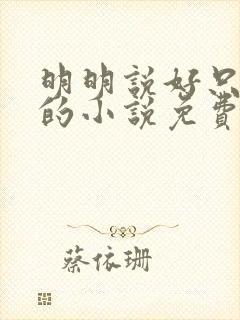 明明說好只
的小說免費
蔡依珊